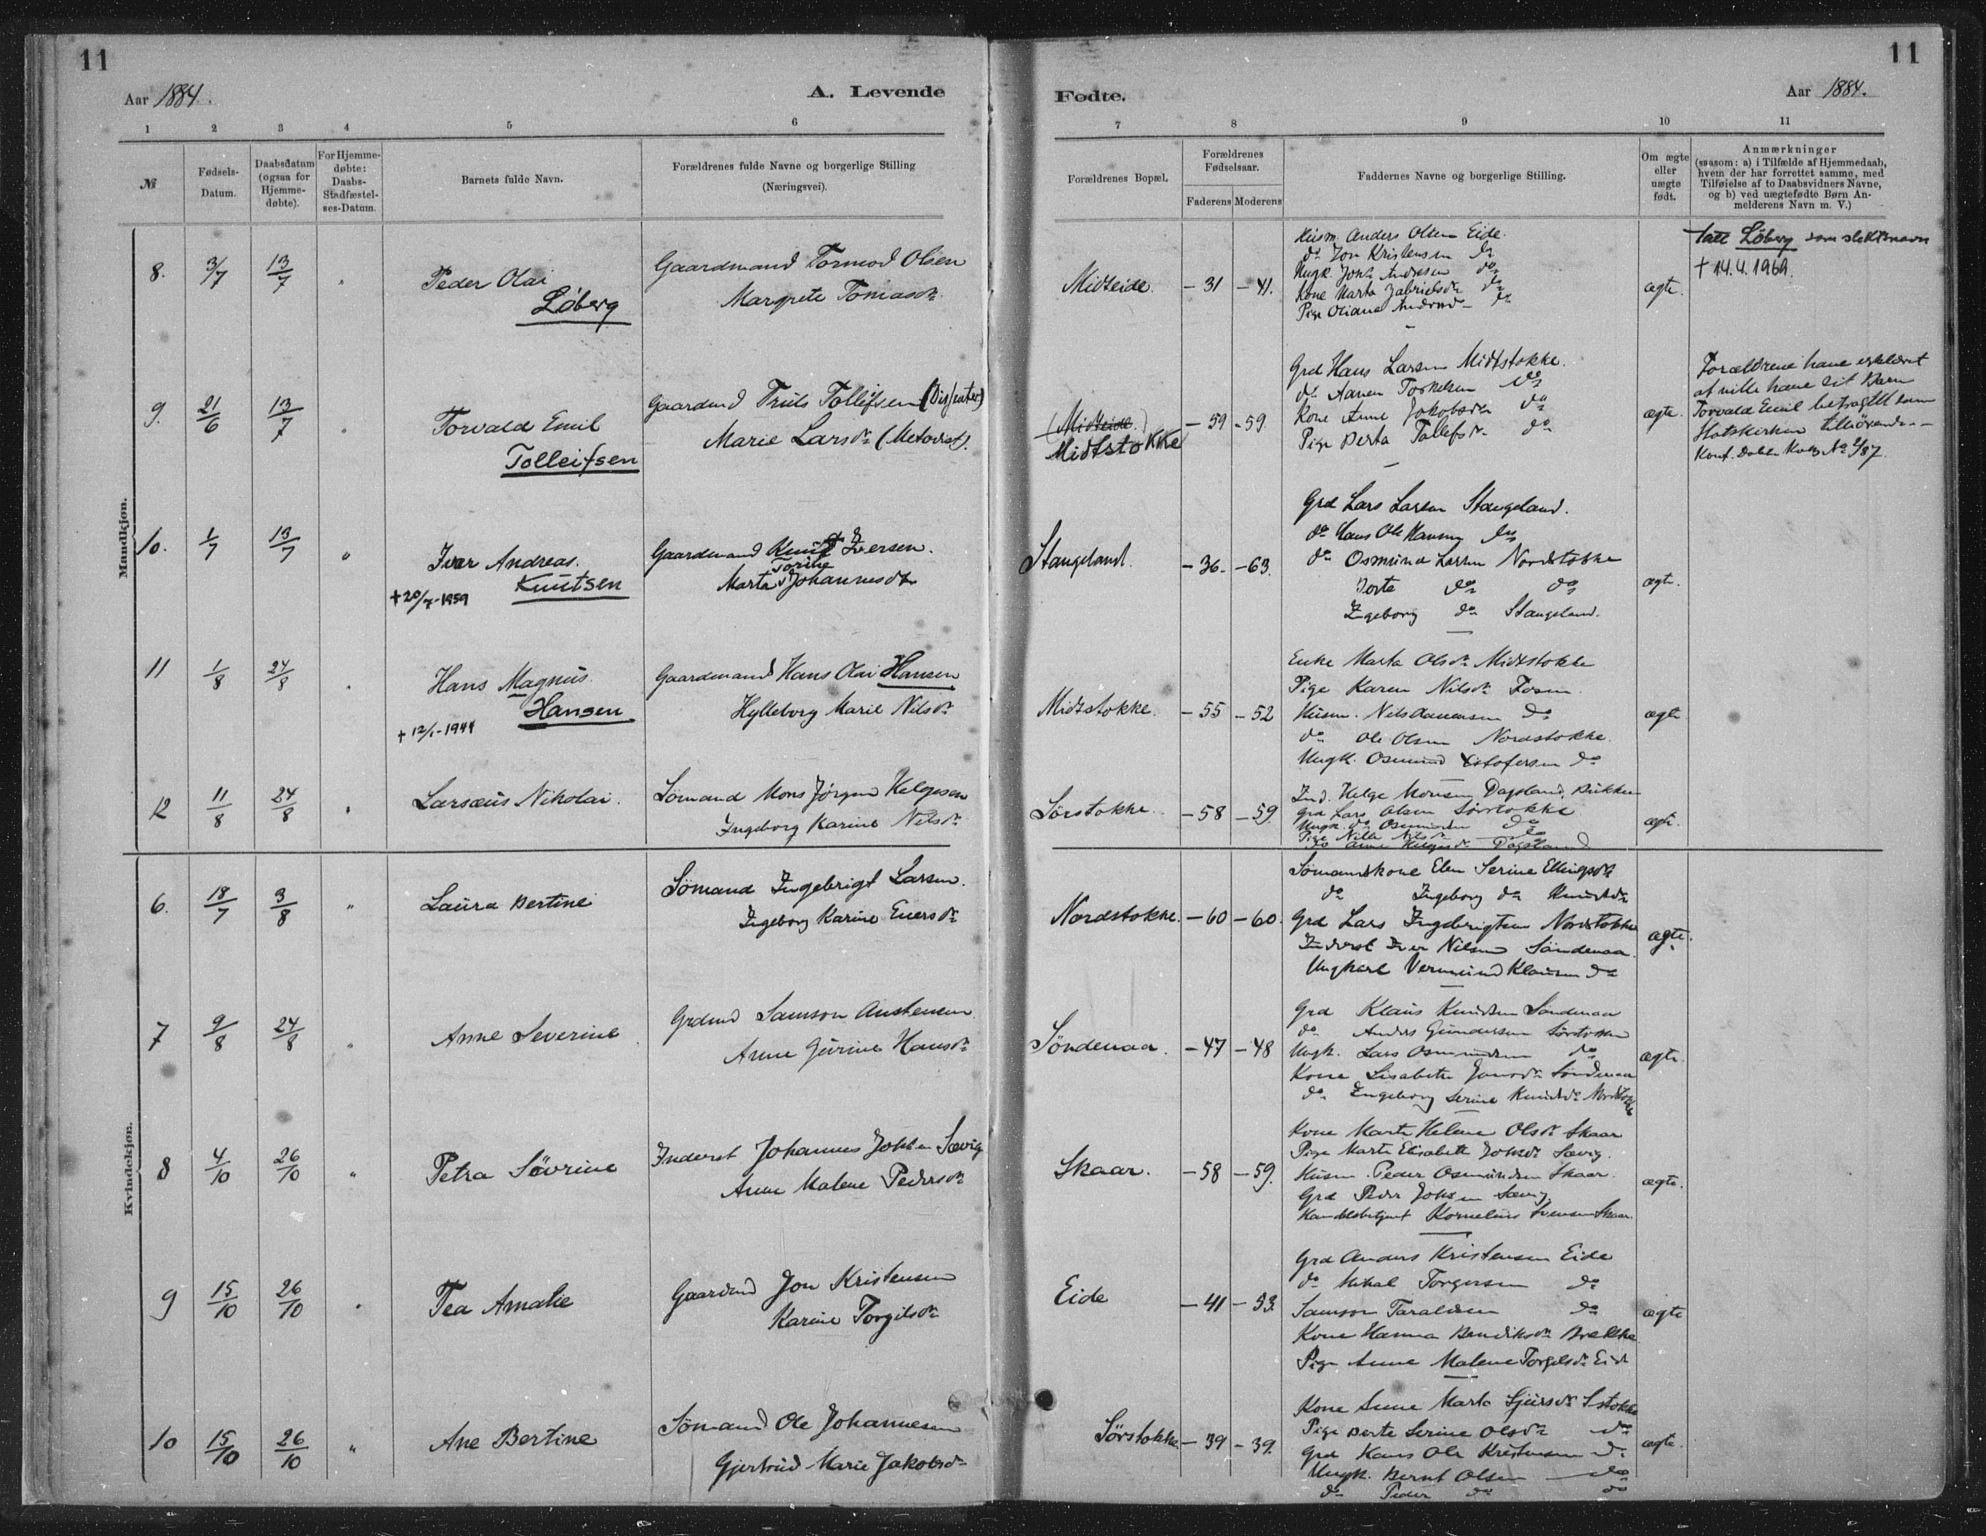 11
11
Aar 1884.
A. Levende
Fødte.
Aar 1884.
1 2 3 4 5 6 7 8 9 10 11
№
Fødsels-Datum.
Daabsdatum (ogsaa for Hjemme-døbte).
For Hjemme-døbte: Daabs-Stadfæstel-ses-Datum.
Barnets fulde Navn.
Forældrenes fulde Navne og borgerlige Stilling
(Næringsvei).
Forældrenes Bopæl.
Forældrenes Fødselsaar.
Faderens Moderens
Faddernes Navne og borgerlige Stilling.
Om ægte eller uægte født.
Anmærkninger
(saasom: a) i Tilfælde af Hjemmedaab,
hvem der har forrettet samme, med
Tilføielse af to Daabsvidners Navne,
og b) ved uægtefødte Børn An-
melderens Navn m. V.)
Mandkjøn.
8. 3/7 13/7 " Peder Olai
Løberg
Gaardmand Tormod Olsen
Margrete Tomasdr
Midteide - 31 - 41.
Husm. Anders Olsen Eide.
do Jon Kristensen do
Ungk. John Andersen do
Kone Marta Gabrielsdr do
Pige Oliane Andersdr do
ægte.
Tatt Løberg som slektsnavn
+ 14.4.1969.
9. 21/6 13/7 " Torvald Emil
Tolleifsen
Gaardmd Truls Tollifsen (Dissenter)
Marie Larsdr (Metodist).
(Midteide.)
Midtstokke - 59 - 59.
Grd Hans Larsen Midtstokke.
do Aanen Torkelsen do
Kone Anne Jakobsdr do
Pige Berta Tollefsdr do
ægte.
Forældrene have erklæret
at ville have sit Barn
Torvald Emil betragtet som
Statskirken tilhørende.
10. 1/7 13/7 " Ivar Andreas.
Knutsen
+ 20/7-1959
Gaardmand Knut Iversen.
Marta Torine Johannesdr
Stangeland. - 36. - 63.
Grd Lars Larsen Stangeland.
do Hans Ole Hansen do
do Osmund Larsen Nordstokke
Dorte do do
Ingeborg do Stangeland.
ægt.
11 1/8 24/8 " Hans Magnus.
Hansen
+ 12/1-1944
Gaardmand Hans Olai Hansen
Hylleborg Marie Nilsdr
Midtstokke. - 55 - 52
Enke Marta Olsdr Midtstokke
Pige Karen Nilsdr Fosen
Husm. Nils Aanensen do
do Ole Olsen Nordstokke.
Ungk. Osmund Kristofersen do
ægte
12 11/8 24/8 " Larsæus Nikolai.
Sømand Mons Jørgen Helgesen
Ingeborg Karine Nilsdr
Sørstokke. - 58 - 59.
Ind. Helge Monsen Dagsland, Bukken
Grd Lars Olsen Sørstokke
Ungk. do Osmundsen do
Pige Nilla Nilsdr do
do Anne Helgesdr Dagsland
ægte.
Kvindekjøn.
6. 18/7 3/8 " Laura Bertine
Sømand Ingebrigt Larsen.
Ingeborg Karine Eversdr
Nordstokke. - 60 - 60.
Sømandskone Elen Serine Ellingsdr
do Ingeborg do Knudsdr
Grd Lars Ingebrigtsen Nordstokke
Inderst Iver Nilsen Søndenaa
Ungkarl Vermund Klausen do
ægte.
7 9/8 24/8 " Anne Severine.
Grdmd Samson Austensen
Anne Gurine Hansdr
Søndenaa. - 47 - 48
Grd Klaus Knudsen Søndenaa
do Anders Gundersen Sørstokke
Ungk. Lars Osmundsen do
Kone Lisabeth Jonsdr Søndenaa
do Engeborg Serine Knudsdr Nordstokke
ægte.
8 4/10 26/10 " Petra Søvrine
Inderst Johannes Johsen Sævig
Anne Malene Pedersdr
Skaar. - 58 - 59.
Kone Marta Helene Olsdr Skaar
Pige Marta Elisabeth Johsdr Sævig.
Husm. Peder Osmundsen Skaar.
Grd Peder Johsen Sævig
Handelsbetjent Kornelius Svensen Skaar.
ægte.
9 15/10 26/10 " Tea Amalie
Gaardmd Jon Kristensen
Karine Torgilsdr
Eide - 41 - 53.
Grd Anders Kristensen Eide
do Mikal Torgersen do
Samson Taraldsen do
Kone Hanna Bendiksdr Brekke
Pige Anne Malene Torgelsdr Eide
ægte
10 15/10 26/10 " Ane Bertine
Sømand Ole Johannesen
Gjertrud Marie Jakobsdr
Sørstokke - 39 - 39.
Kone Anne Marta Sjursdr S.stokke
Pige Berte Serine Olsdr do
Grd Hans Ole Kristensen do
Ungk. Bernt Olsen do
do Peder do do
ægte.